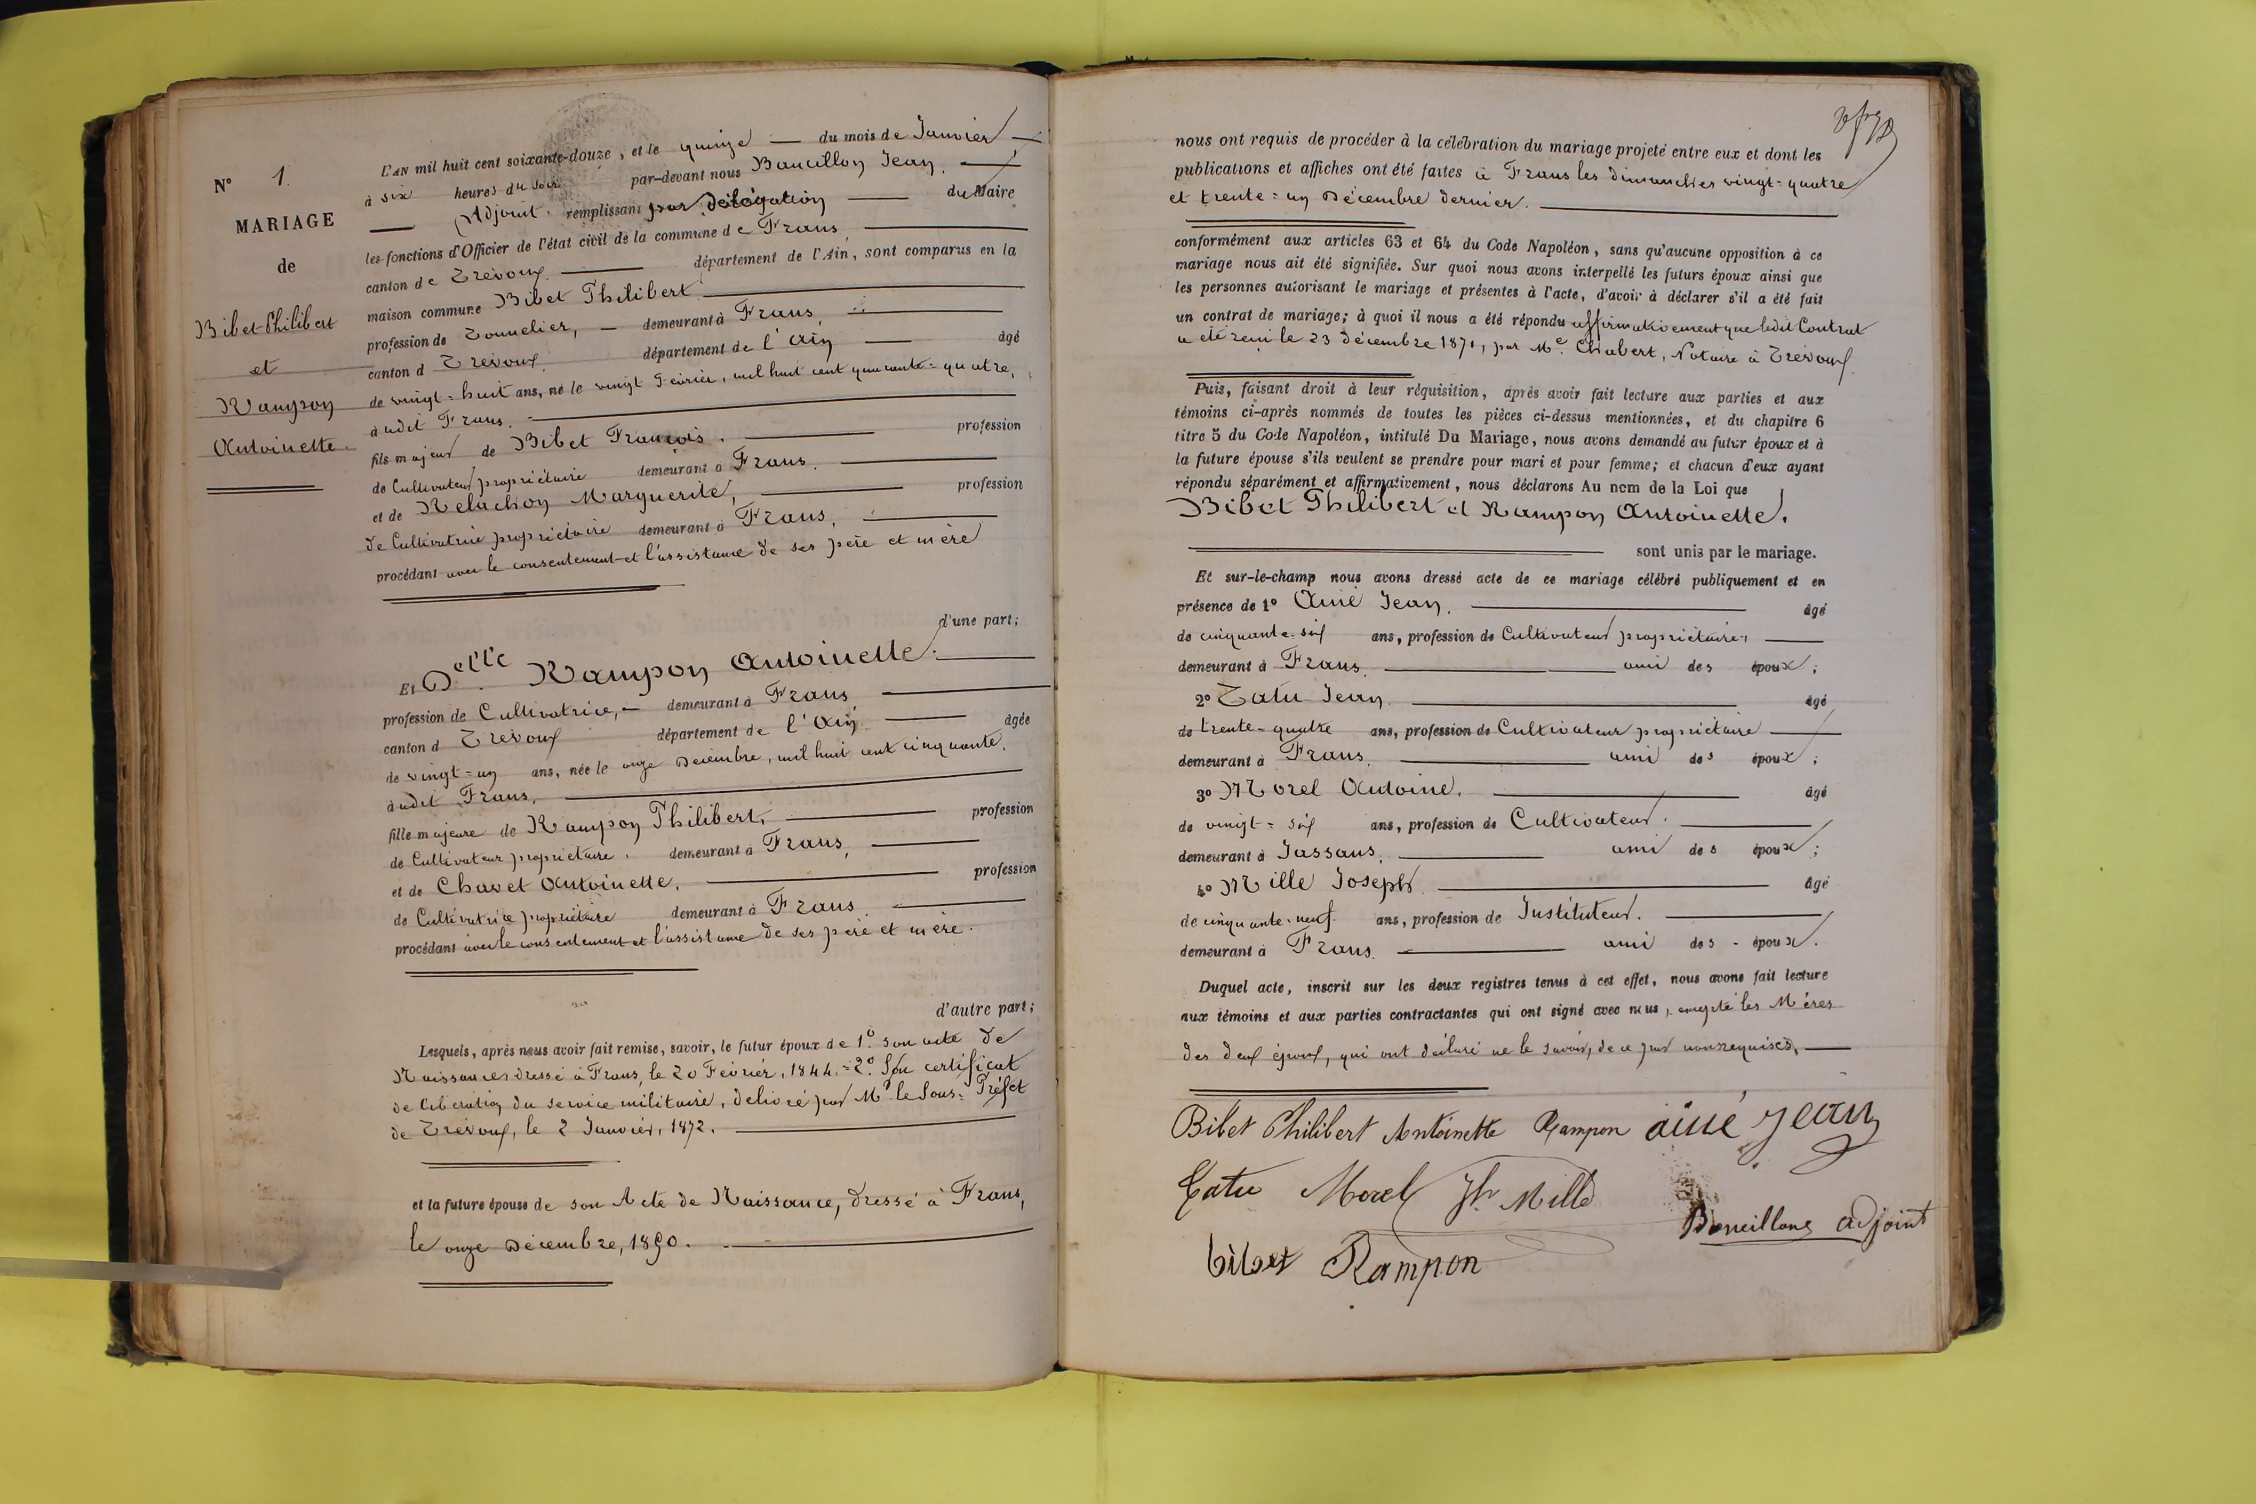 N° 1.
MARIAGE
de
Bibet Philibert
et
Rampon
Antoinette
L'AN mil huit cent soixante-douze, et le quinze — du mois de Janvier
à six heures du soir par-devant nous Baucillon Jean,
Adjoint remplissant par Délégation du Maire
les fonctions d'Officier de l'état civil de la commune de Frans,
canton de Trévoux. département de l'Ain, sont comparus en la
maison commune Bibet Philibert
profession de Tonnelier, — demeurant à Frans,
canton d Trévoux. département de l'Ain âgé
de vingt-huit ans, né le vingt Février, mil huit cent quarante-quatre,
à udit Frans.
fils majeur de Bibet François. profession
de Cultivateur propriétaire demeurant à Frans.
et de Relachon Marguerite, profession
de Cultivatrice propriétaire demeurant à Frans.
procédant avec le consentement et l'assistance de ses père et mère
d'une part;
Et Delle Rampon Antoinette.
profession de Cultivatrice, — demeurant à Frans
canton d Trévoux département de l'Ain. âgée
de vingt-un ans, née le onze Décembre, mil huit cent cinquante,
à udit Frans,
fille majeure de Rampon Philibert, profession
de Cultivateur propriétaire. demeurant à Frans,
et de Chavet Antoinette. profession
de Cultivatrice propriétaire demeurant à Frans
procédant avec le consentement et l'assistance de ses père et mère.
d'autre part;
Lesquels, après nous avoir fait remise, savoir, le futur époux de 1° son acte de
Naissance dressé à Frans, le 20 Février, 1844. = 2° Son certificat
de libération du service militaire, délivré par Mr le Sous-Préfet
de Trévoux, le 2 Janvier, 1872.
et la future épouse de son Acte de Naissance, dressé à Frans,
le onze Décembre, 1850.
nous ont requis de procéder à la célébration du mariage projeté entre eux et dont les
publications et affiches ont été faites à Frans les dimanches vingt-quatre
et trente-un Décembre dernier.
conformément aux articles 63 et 64 du Code Napoléon, sans qu'aucune opposition à ce
mariage nous ait été signifiée. Sur quoi nous avons interpellé les futurs époux ainsi que
les personnes autorisant le mariage et présentes à l'acte, d'avoir à déclarer s'il a été fait
un contrat de mariage; à quoi il nous a été répondu affirmativement que ledit Contrat
a été reçu le 23 décembre 1871, par Me Chabert, Notaire à Trévoux.
Puis, faisant droit à leur réquisition, après avoir fait lecture aux parties et aux
témoins ci-après nommés de toutes les pièces ci-dessus mentionnées, et du chapitre 6
titre 5 du Code Napoléon, intitulé Du Mariage, nous avons demandé au futur époux et à
la future épouse s'ils veulent se prendre pour mari et pour femme; et chacun d'eux ayant
répondu séparément et affirmativement, nous déclarons Au nom de la Loi que
Bibet Philibert et Rampon Antoinette.
sont unis par le mariage.
Et sur-le-champ nous avons dressé acte de ce mariage célébré publiquement et en
présence de 1° Aimé Jean. âgé
de cinquante-six ans, profession de Cultivateur propriétaire,
demeurant à Frans. ami des époux;
2° Tatu Jean âgé
de trente-quatre ans, profession de Cultivateur propriétaire
demeurant à Frans. ami des époux;
3° Morel Antoine. âgé
de vingt-six ans, profession de Cultivateur.
demeurant à Jassans. ami des époux;
4° Mille Joseph âgé
de cinquante-neuf ans, profession de Instituteur.
demeurant à Frans. ami des époux.
Duquel acte, inscrit sur les deux registres tenus à cet effet, nous avons fait lecture
aux témoins et aux parties contractantes qui ont signé avec nous, excepté les Mères
des deux époux, qui ont déclaré ne le savoir, de ce par nous requises,
Bibet Philibert Antoinette Rampon aimé Jean
Tatu Morel Jh Mille
Boucillon adjoint
bibet Rampon